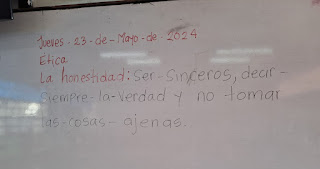 Jueves-23-de-Mayo-de-2024
Ética
La honestidad: Ser-Sinceros, decir-
siempre-la-verdad y no-tomar
las-cosas-ajenas.